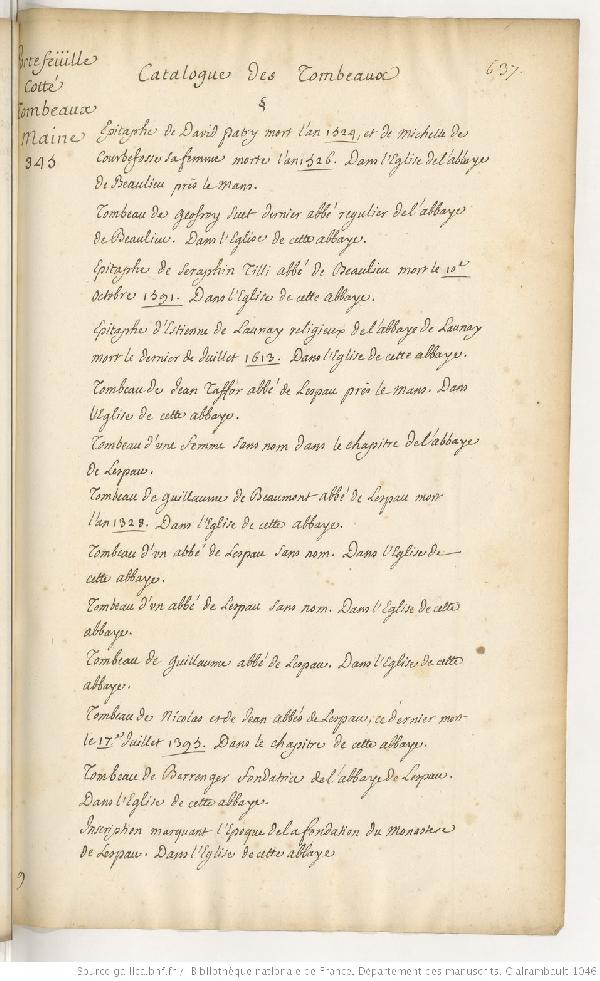 Portefeüille
Cotté
Tombeaux
Maine
343
Catalogue des Tombeaux
637.
§
Epitaphe de David Patry mort l'an 1524, et de Michelle de
Courbefosse sa femme morte l'an 1526. Dans l'Eglise de l'abbaye
de Beaulieu près le Mans.
Tombeau de Geofroy Suet dernier abbé regulier de l'abbaye
de Beaulieu. Dans l'Eglise de cette abbaye.
Epitaphe de Seraphin Tilli abbé de Beaulieu mort le 10e
Octobre 1591. Dans l'Eglise de cette abbaye.
Epitaphe d'Estienne de Launay religieux de l'abbaye de Launay
mort le dernier de Juillet 1613. Dans l'Eglise de cette abbaye.
Tombeau de Jean Taffor abbé de Lespau près le Mans. Dans
l'Eglise de cette abbaye.
Tombeau d'une femme sans nom dans le chapitre de l'abbaye
de Lespau.
Tombeau de Guillaume de Beaumont abbé de Lespau mort
l'an 1328. Dans l'Eglise de cette abbaye.
Tombeau d'vn abbé de Lespau sans nom. Dans l'Eglise de
cette abbaye.
Tombeau d'vn abbé de Lespau sans nom. Dans l'Eglise de cette
abbaye.
Tombeau de Guillaume abbé de Lespau. Dans l'Eglise de cette
abbaye.
Tombeau de Nicolas et de Jean abbés de Lespau, ce dernier mort
le 17e Juillet 1395. Dans le chapitre de cette abbaye.
Tombeau de Berrenger fondatrice de l'abbaye de Lespau.
Dans l'Eglise de cette abbaye.
Inscription marquant l'Epoque de la fondation du Monastere
de Lespau. Dans l'Eglise de cette abbaye
Source gallica.bnf.fr / Bibliothèque nationale de France. Département des manuscrits. Clairambault 1046